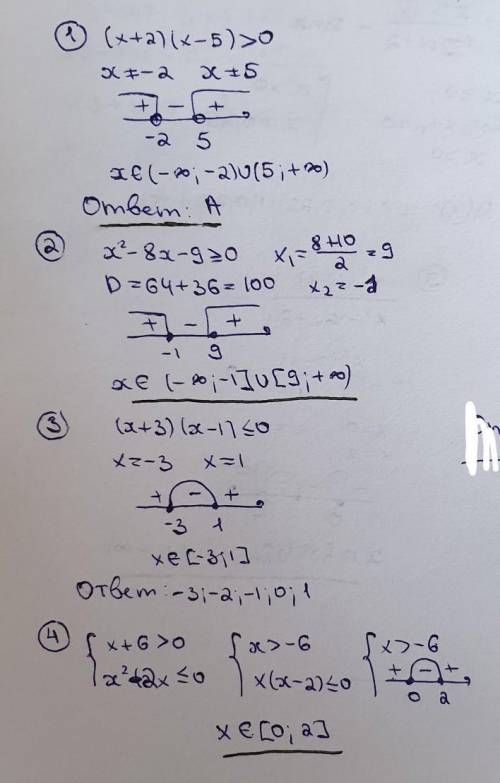 ① (x+2)(x-5)>0
x≠-2 x≠5
+ - +
-2 5
x∈(-∞;-2)∪(5;+∞)
Ответ: А
② x²-8x-9≥0 x₁=(8+10)/2=9
D=64+36=100 x₂=-1
+ - +
-1 9
x∈(-∞;-1]∪[9;+∞)
③ (x+3)(x-1)≤0
x=-3 x=1
+ - +
-3 1
x∈[-3;1]
Ответ: -3;-2;-1;0;1
④ { x+6>0 { x>-6 { x>-6
x²-2x≤0 x(x-2)≤0 + - +
0 2
x∈[0;2]